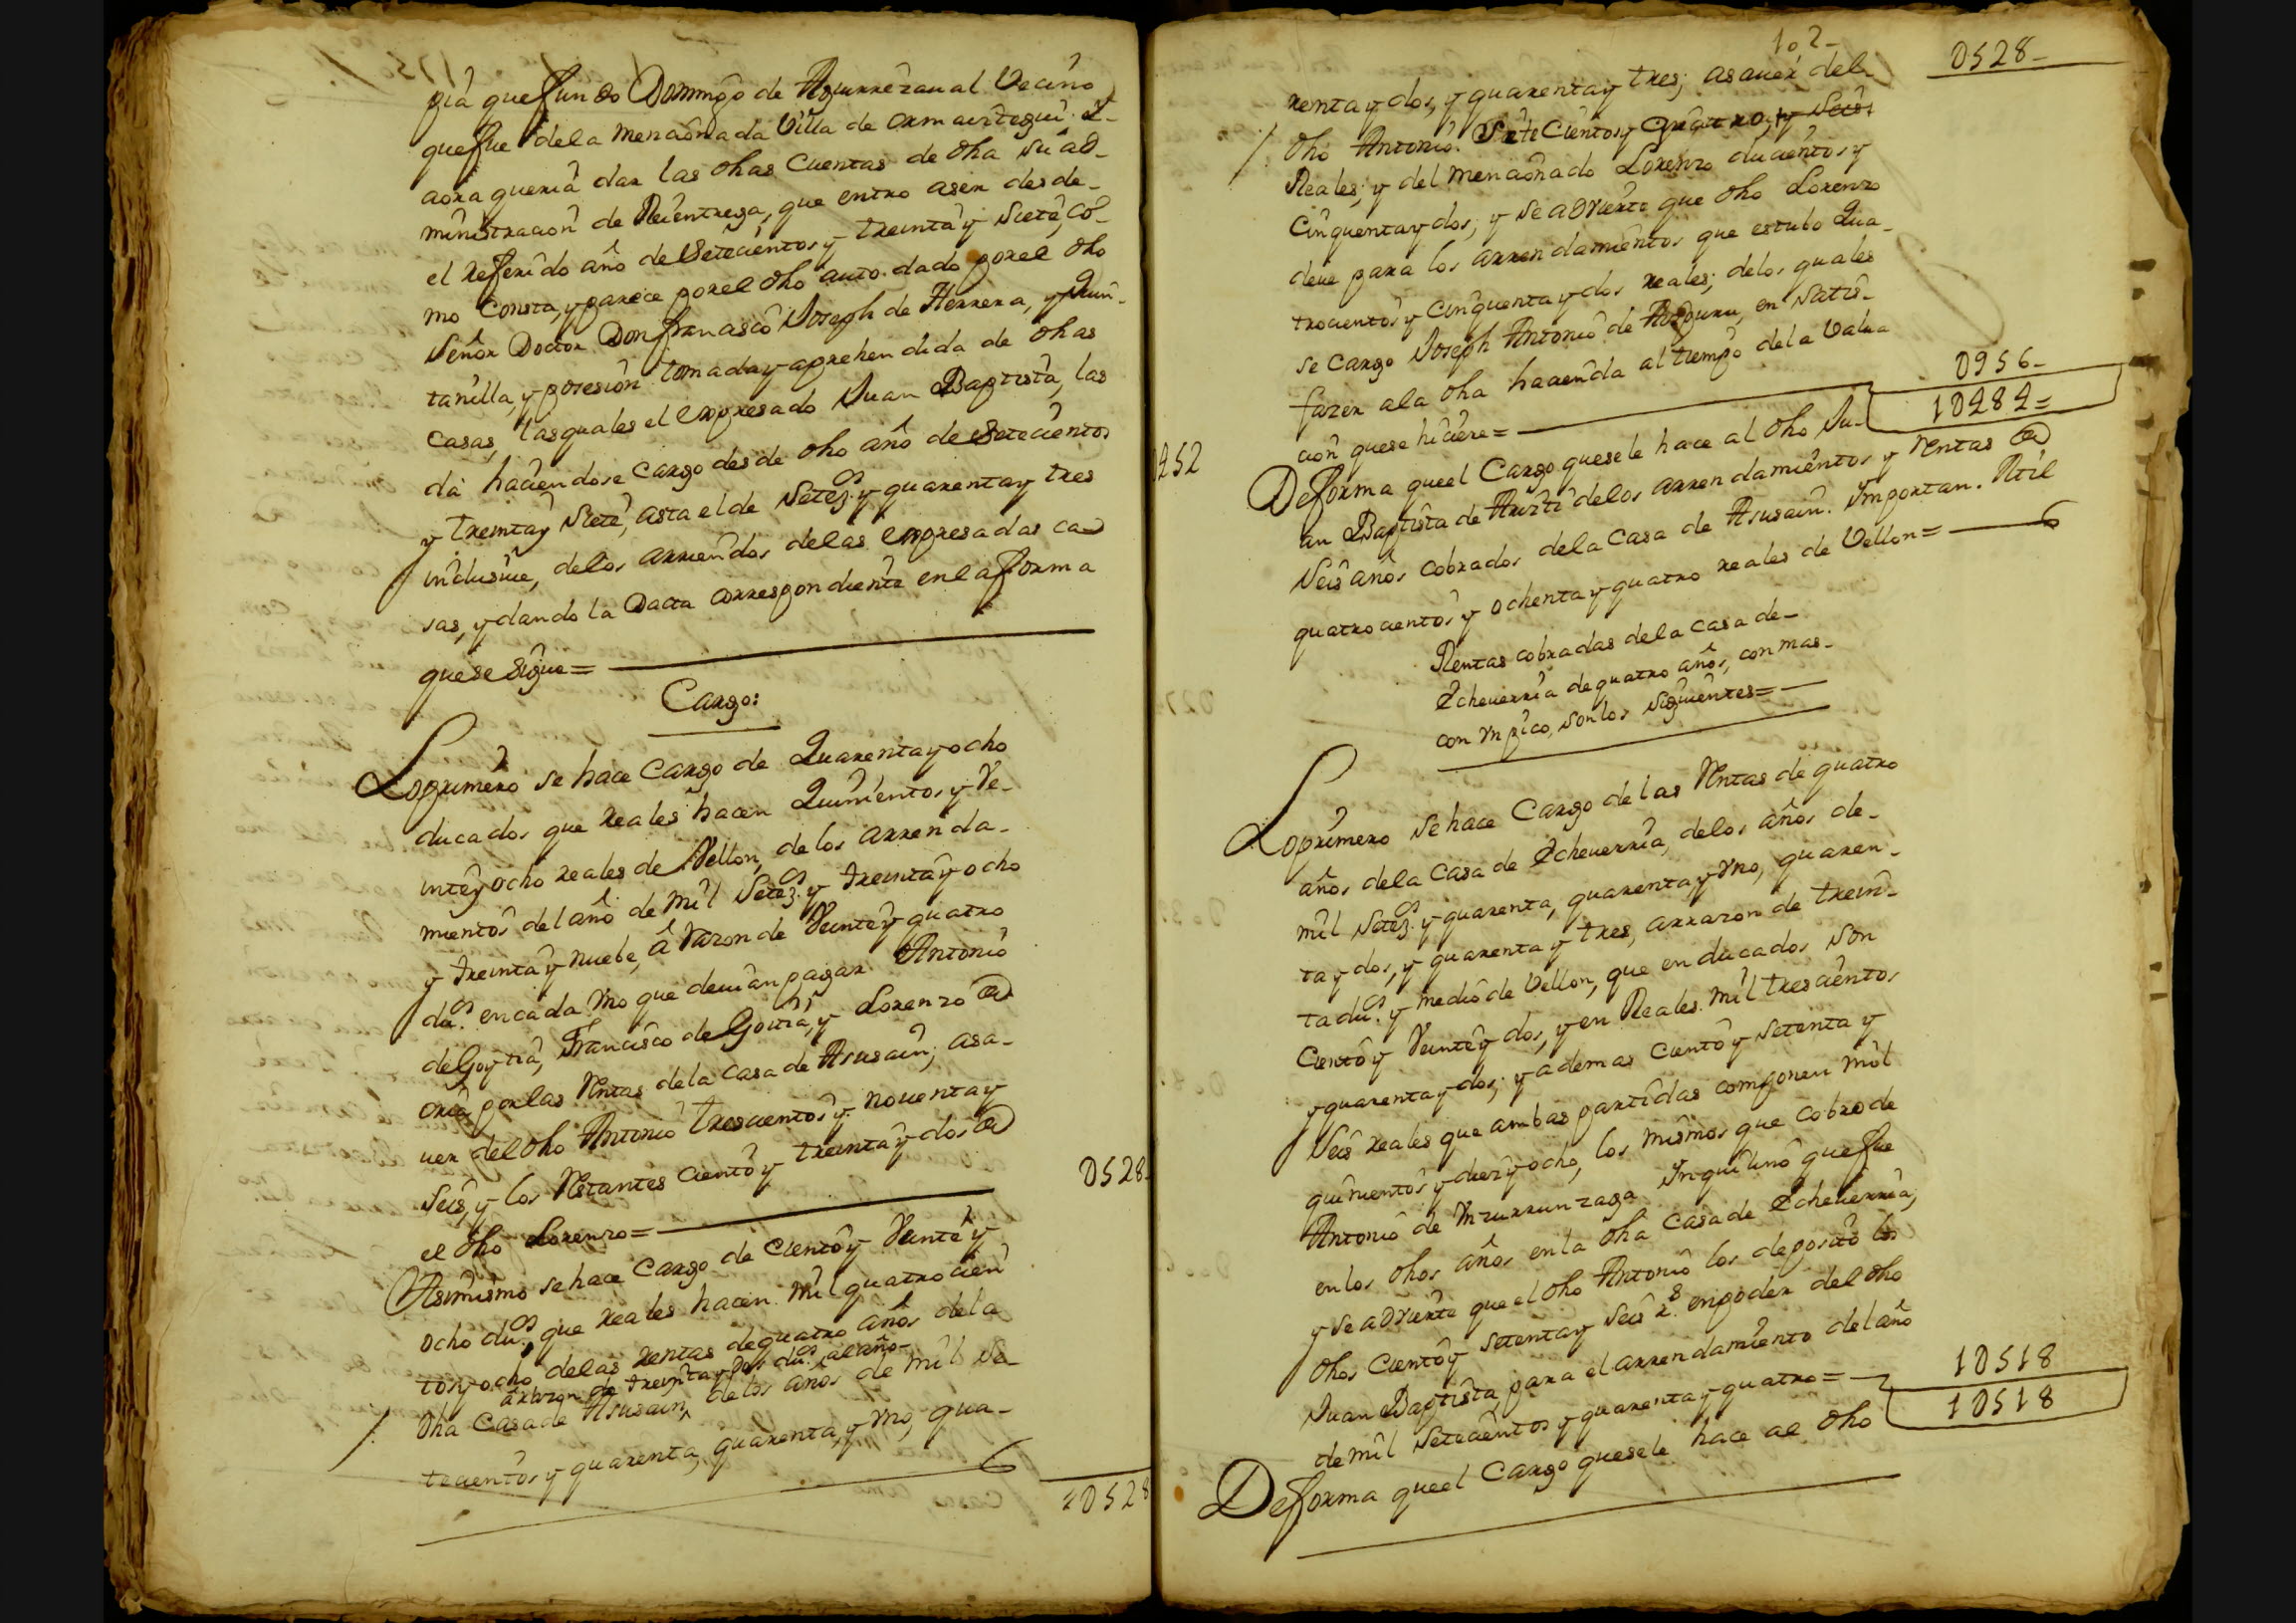 pia que fundo Domingo de Aguirrezaual Vecino
que fue de la mencionada Villa de ormaiztegui. Y
aora queria dar las dhas Cuentas de dha su ad-
ministracion de Reientrega, que entro aser desde-
el referido año de Setecientos y treinta y Siete, co-
mo Consta, y parece por el dho auto dado por el dho
Señor Doctor Don francisco Joseph de Herrera, y Quin-
tanilla, y posesion tomada y aprehendida de dhas
Casas, las quales el expresado Juan Baptista, las
da haciendose Cargo desde dho año de Setecientos
y treinta y Siete, asta el de Setezos y quarenta y tres
inclusive, de los arriendos de las expresadas ca-
sas, y dando la Datta correspondiente en la forma
que se sigue=
Cargo:
Lo primero se hace Cargo de Quarenta y ocho
ducados que reales hacen Quinientos y Ve-
inte y ocho reales de Vellon, de los arrenda-
mientos del año de mil Setezos y treinta y ocho
y treinta y nuebe, â razon de Veinte y quatro
dus. en cada Vno que deuian pagar Antonio
de Goytia, Francisco de Goitia, y Lorenzo @
oria por las Rentas de la Casa de Asusain; asa-
uer del dho Antonio trescientos y nouenta y
Seis, y los Restantes ciento y treinta y dos @
el dho Lorenzo= 0528-
Asimismo se hace Cargo de Ciento y Veinte y
ocho dus. que reales hacen mil quatrocien
tos y ocho de las rentas de quatro años de la
â razon de treinta y dos dus. al año-
/. Dha Casa de Asusain, de los años de mil Se-
tecientos y quarenta, quarenta, y Vno, qua-
10528
102-
0528-
renta y dos, y quarenta y tres; asauer del
/. dho Antonio. Sete Cientos y quatro, y Seis
Reales; y del mencionado Lorenzo ducientos y
Cinquenta y dos; y se advierte que dho Lorenzo
deue para los arrendamientos que estubo Qua-
trocientos y cinquenta y dos reales; de los quales
se cargo Joseph Antonio de en Satis-
facer a la dha hacienda al tiempo de la Valua
cion que se hiciere= 0956-
0452
De forma que el Cargo que se le hace al dho Ju- 10484=
an Baptista de Aristi de los arrendamientos y Rentas @
Seis años cobrados de la Casa de Asusain. Importan. Mil
quatrocientos y ochenta y quatro reales de Vellon=
Rentas cobradas de la Casa de-
Echeuerria de quatro años, con mas-
con Vn pico, son los siguientes=
Lo primero se hace Cargo de las Rentas de quatro
años de la Casa de Echeuerria, de los años de-
mil Setezos y quarenta, quarenta y Vno, quaren-
ta y dos, y quarenta y tres, arrazon de trein-
ta dus. y medio de Vellon, que en ducados son
Ciento y Veinte y dos, y en Reales. mil trescientos
y quarenta y dos; y ademas ciento y setenta y
Seis reales que ambas partidas componen mil
quinientos y diez y ocho, los mismos que cobro de
Antonio de Vzurrunzaga Inquilino que fue
en los dhos años en la dha Casa de Echeuerria;
y se advierte que el dho Antonio los deposito los
dhos Ciento y setenta y Seis rs. en poder del dho
Juan Baptista, para el arrendamiento del año
de mil Setecientos y quarenta y quatro= 10518
De forma que el Cargo que se le hace al dho 10518